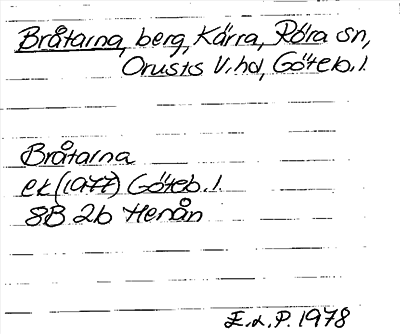 Bråtarna, berg, Kärra, Röra sn,
Orusts V. hd, Göteb. l.
Bråtarna
ek (1977) Göteb. l.
8B 2b Henån
E.d.P. 1978